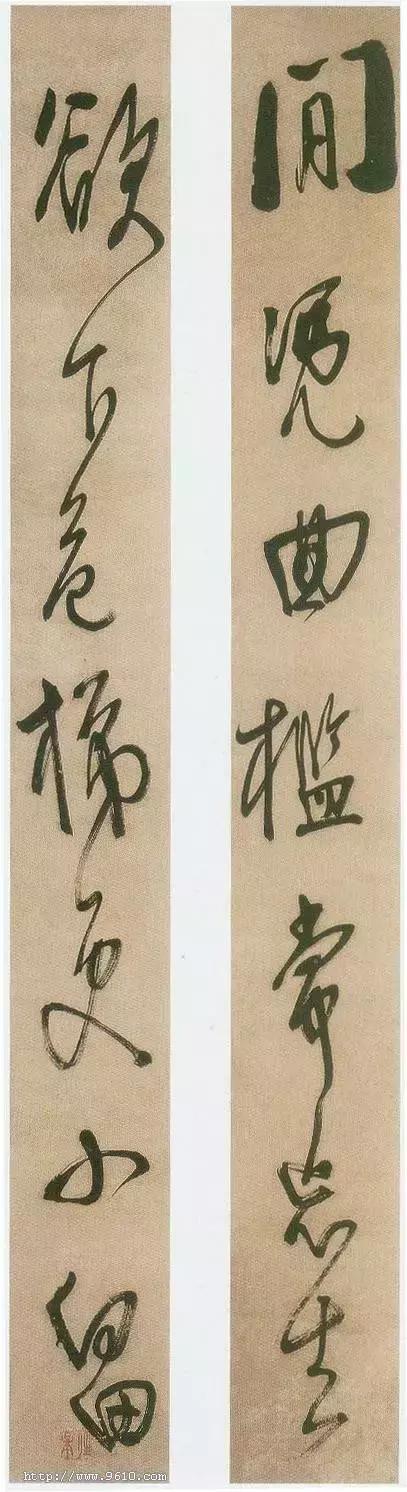 閒凴曲檻常忘去
欲下危梯更小留
http://www.9610.com